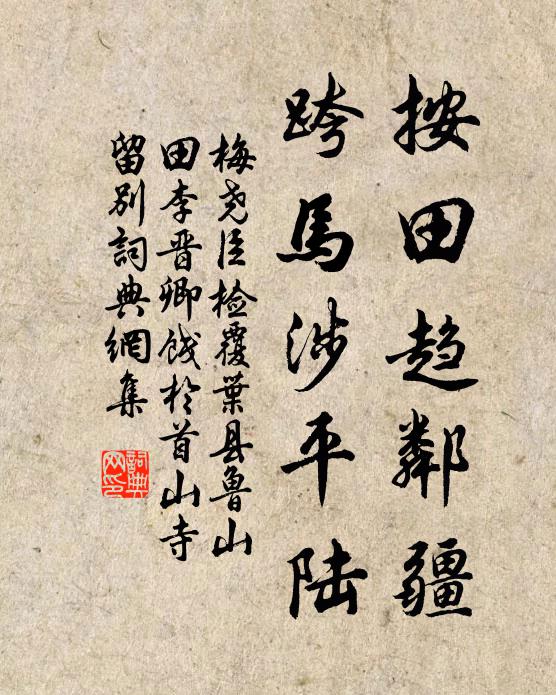 按田趋鄰疆
跨馬涉平陆
梅尧臣检覆葉县鲁山
田李晋卿餞於首山寺
留别詞典網集
詞典
网印